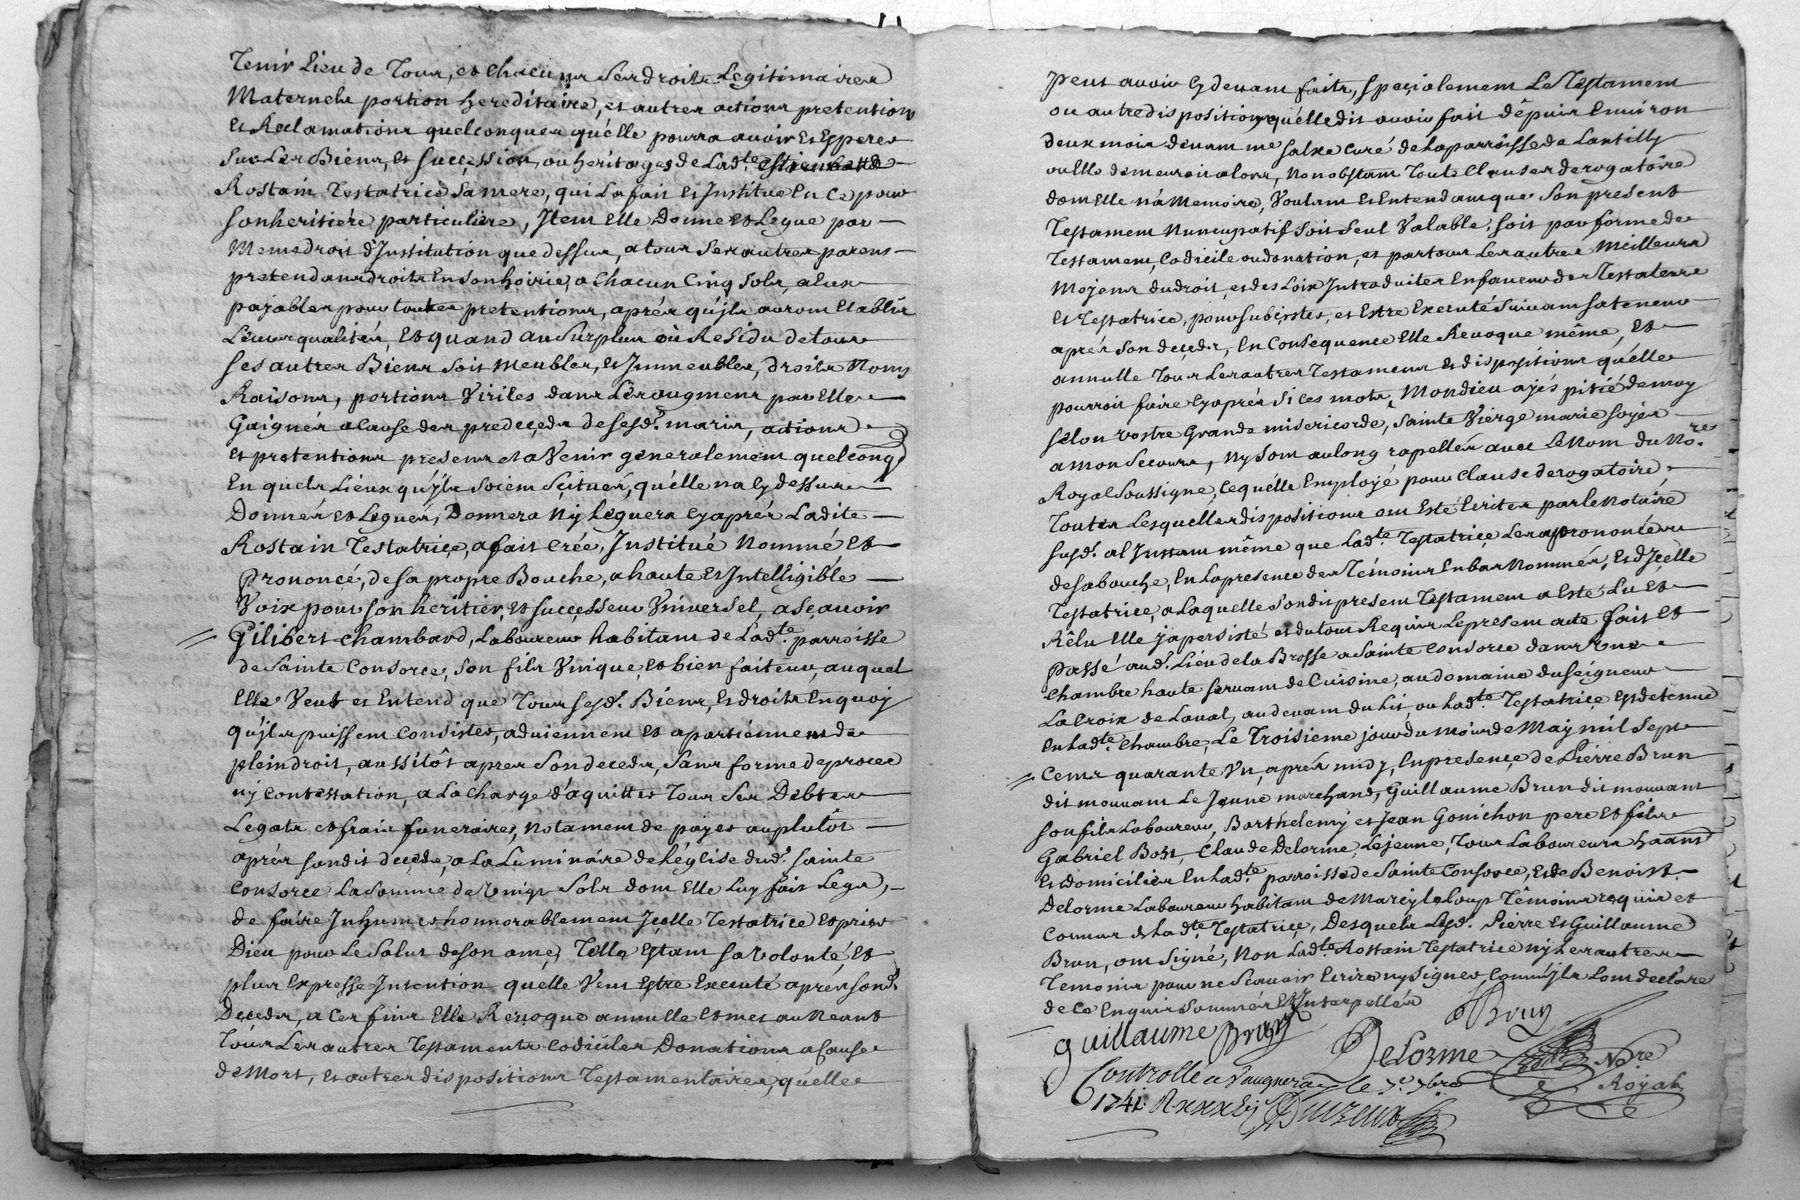 Tenir Lieu de Tous, et chacuns ses droits Legitimaires
Maternels portion hereditaire, et autres actions pretentions
Et Reclamations quelconques qu'elle pourra avoir Et Esperer
sur Les Biens, Et succession, ou heritages de Ladte.
Rostain Testatrice sa mere, qui La fait Et Institue En ce pour
son heritiére particuliére, Item Elle Donne et Legue par
Meme droit d'Institution que dessus, a tous ses autres parens
pretendans droits En son hoirie, a chacun Cinq sols, a Eux
payables pour toutes pretentions, aprés qu'ils auront Etablis
Leurs qualités, Et quand au surplus où Residu de tous
ses autres Biens soit Meubles, et Immeubles, droits Noms
Raisons, portions Viriles dans Les augmens par Elle
Gaignés a Cause des predecéds de sesd. maris, actions
et pretentions presens et aVenir generalement quelconq
En quels Lieux qu'ils soient scitués, qu'elle n'a cy dessus
Donnés et Legués, Donnera Ny Leguera cy aprés Ladite
Rostain Testatrice, a fait Crée, Institué Nommé Et
Prononcé, de sa propre Bouche, a haute Et Intelligible
Voix pour son heritier, Et successeur Vniversel, a sçavoir
Gilibert chambard, Laboureur habitant de Ladte. parroisse
de Sainte Consorce, son fils Vnique, et bien faiteur, auquel
Elle Veut et Entend que Tous sesd. Biens, Et droits En quoy
qu'ils puissent Consister, adviennent Et apartiennent de
plein droit, aussitôt aprés son deceds, sans forme de procés
ny contestation, a La charge d'aquitter Tous ses Debtes
Legats et frais funeraires, notament de payer au plutôt
aprés sondit deceds, a La Luminaire de L'église dud. sainte
Consorce La somme de Vingt sols dont Elle Luy fait Legs,
de faire Inhumer honnorablement Icelle Testatrice et prier
Dieu pour Le salut de son ame, Telle Estant sa volonté, Et
plus Expresse Intention quelle Veut Estre Executé aprés sond.
Deceds, a ces fins Elle Revoque annulle et met au Neant
Tous Les autres Testaments codiciles Donations a Cause
de Mort, et autres dispositions Testamentaires, qu'elle
Peut avoir cy devant faits, specialement Le Testament
ou autre disposition qu'elle dit avoir fait dépuis Environ
deux mois devant me curé de La parroisse de Lantilly
ou Elle demeuroit alors, Nonobstant Toute Clauses derogatoire
dont Elle n'a Memoire, Voulant Et Entendant que son present
Testament Nuncupatif soit seul Valable, soit par forme de
Testament, Codicile ou donation, et par tous Les autres Meilleurs
Moyens du droit, et des Loix Introduites En faveur des Testateurs
Et Testatrice, pour subsister, et Estre Executé suivant sa teneur
aprés son deceds, En Consequence Elle Revoque même, Et
annulle Tous Les autres Testamens et dispositions qu'elle
pourroit faire cy aprés si ces mots, Mon dieu ayés pitié de moy
selon vostre Grande misericorde, sainte Vierge marie soyés
a mon secours, Ny sont au long rapellés avec Le Nom du No.re
Royal soussigne, Lequ'elle Employé pour Clause derogatoire.
Toutes Lesquelles dispositions ont Esté Ecrites par le Notaire
susd. a L'Instant même que Ladte. Testatrice Les a prononcées
de sa bouche, En La presence des Témoins En bas Nommés, Et d'Icelle
Testatrice, a Laquelle sondit present Testament a Esté Lu et
Rêlu Elle y a persisté et du tout Requis Le present acte fait Et
Passé aud. Lieu de La Brosse a Sainte Consorce dans Une
chambre haute servant de Cuisine, au domaine du seigneur
La Croix de Laval, au devant du Lit, ou Ladte. Testatrice Est detenue
En Ladte. chambre, Le Troisieme jour du mois de May mil sept
Cents quarante Vn, aprés midy, En presence de Pierre Brun
dit mouvant Le Jeune marchand, Guillaume Brun dit mouvant
son fils Laboureur, Barthelemy et Jean Gonichon pere Et fils
Gabriel Bost, Claude Delorme, Lejeune, Tous Laboureurs
Et domiciliés En Ladte. parroisse de Sainte Consorce, Et de Benoist
Delorme Laboureur habitant de Marcy le Loup Témoins requis et
Connus de Ladte. Testatrice, Desquels Lesd. Pierre Et Guillaume
Brun, ont signé, Non Ladte. Rostain Testatrice ny Les autres
Temoins pour ne sçavoir Ecrire ny signer Comm'ils L'ont declaré
de ce Enquis sommés Et Interpellés
Brun
Guillaume Brun
Delorme
Nore
Royal
Controllé a Vaugneray le 7bre
1741